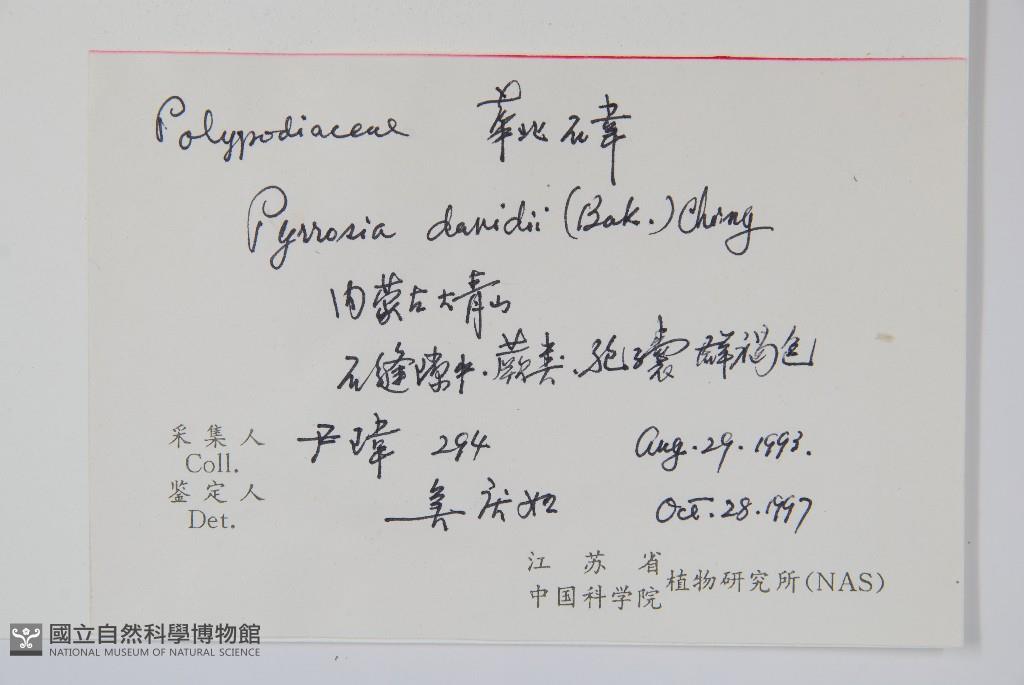 Polypodiaceae 華北石韋
Pyrrosia davidii (Bak.) Ching
内蒙古大青山
石縫隙中.蕨类.孢子囊群褐色
采集人 尹瑋 294 Aug.29.1993.
Coll.
鉴定人 吴庆如 Oct.28.1997
Det.
江苏省
中国科学院 植物研究所(NAS)
國立自然科學博物館
NATIONAL MUSEUM OF NATURAL SCIENCE